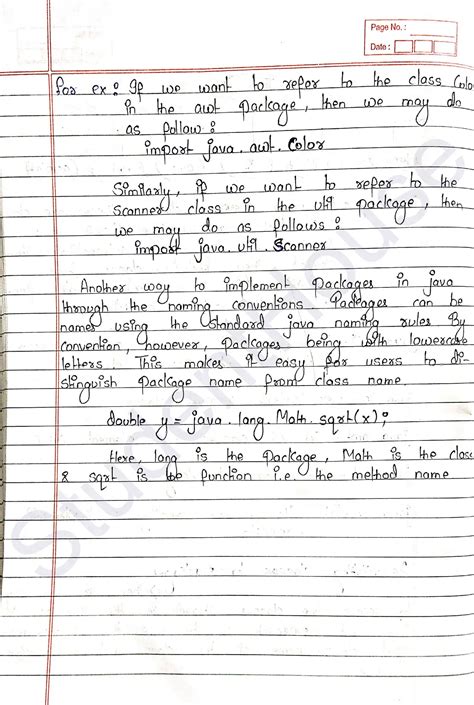 Page No. :
Date :
for ex : If we want to refer to the class Colo
in the awt package, then we may do
as follow :
import java . awt . Color
Similarly, if we want to refer to the
Scanner class in the util package, then
we may do as follows :
import java . util . Scanner
Another way to implement Packages in java
through the naming conventions. Packages can be
names using the Standard java naming rules By
convention, however, Packages being with lowercase
letters. This makes it easy for users to di-
stinguish package name from class name
double y = java . lang . Math . sqrt(x) ;
Here, lang is the package, Math is the class
& sqrt is the function i.e. the method name
StudentHouse